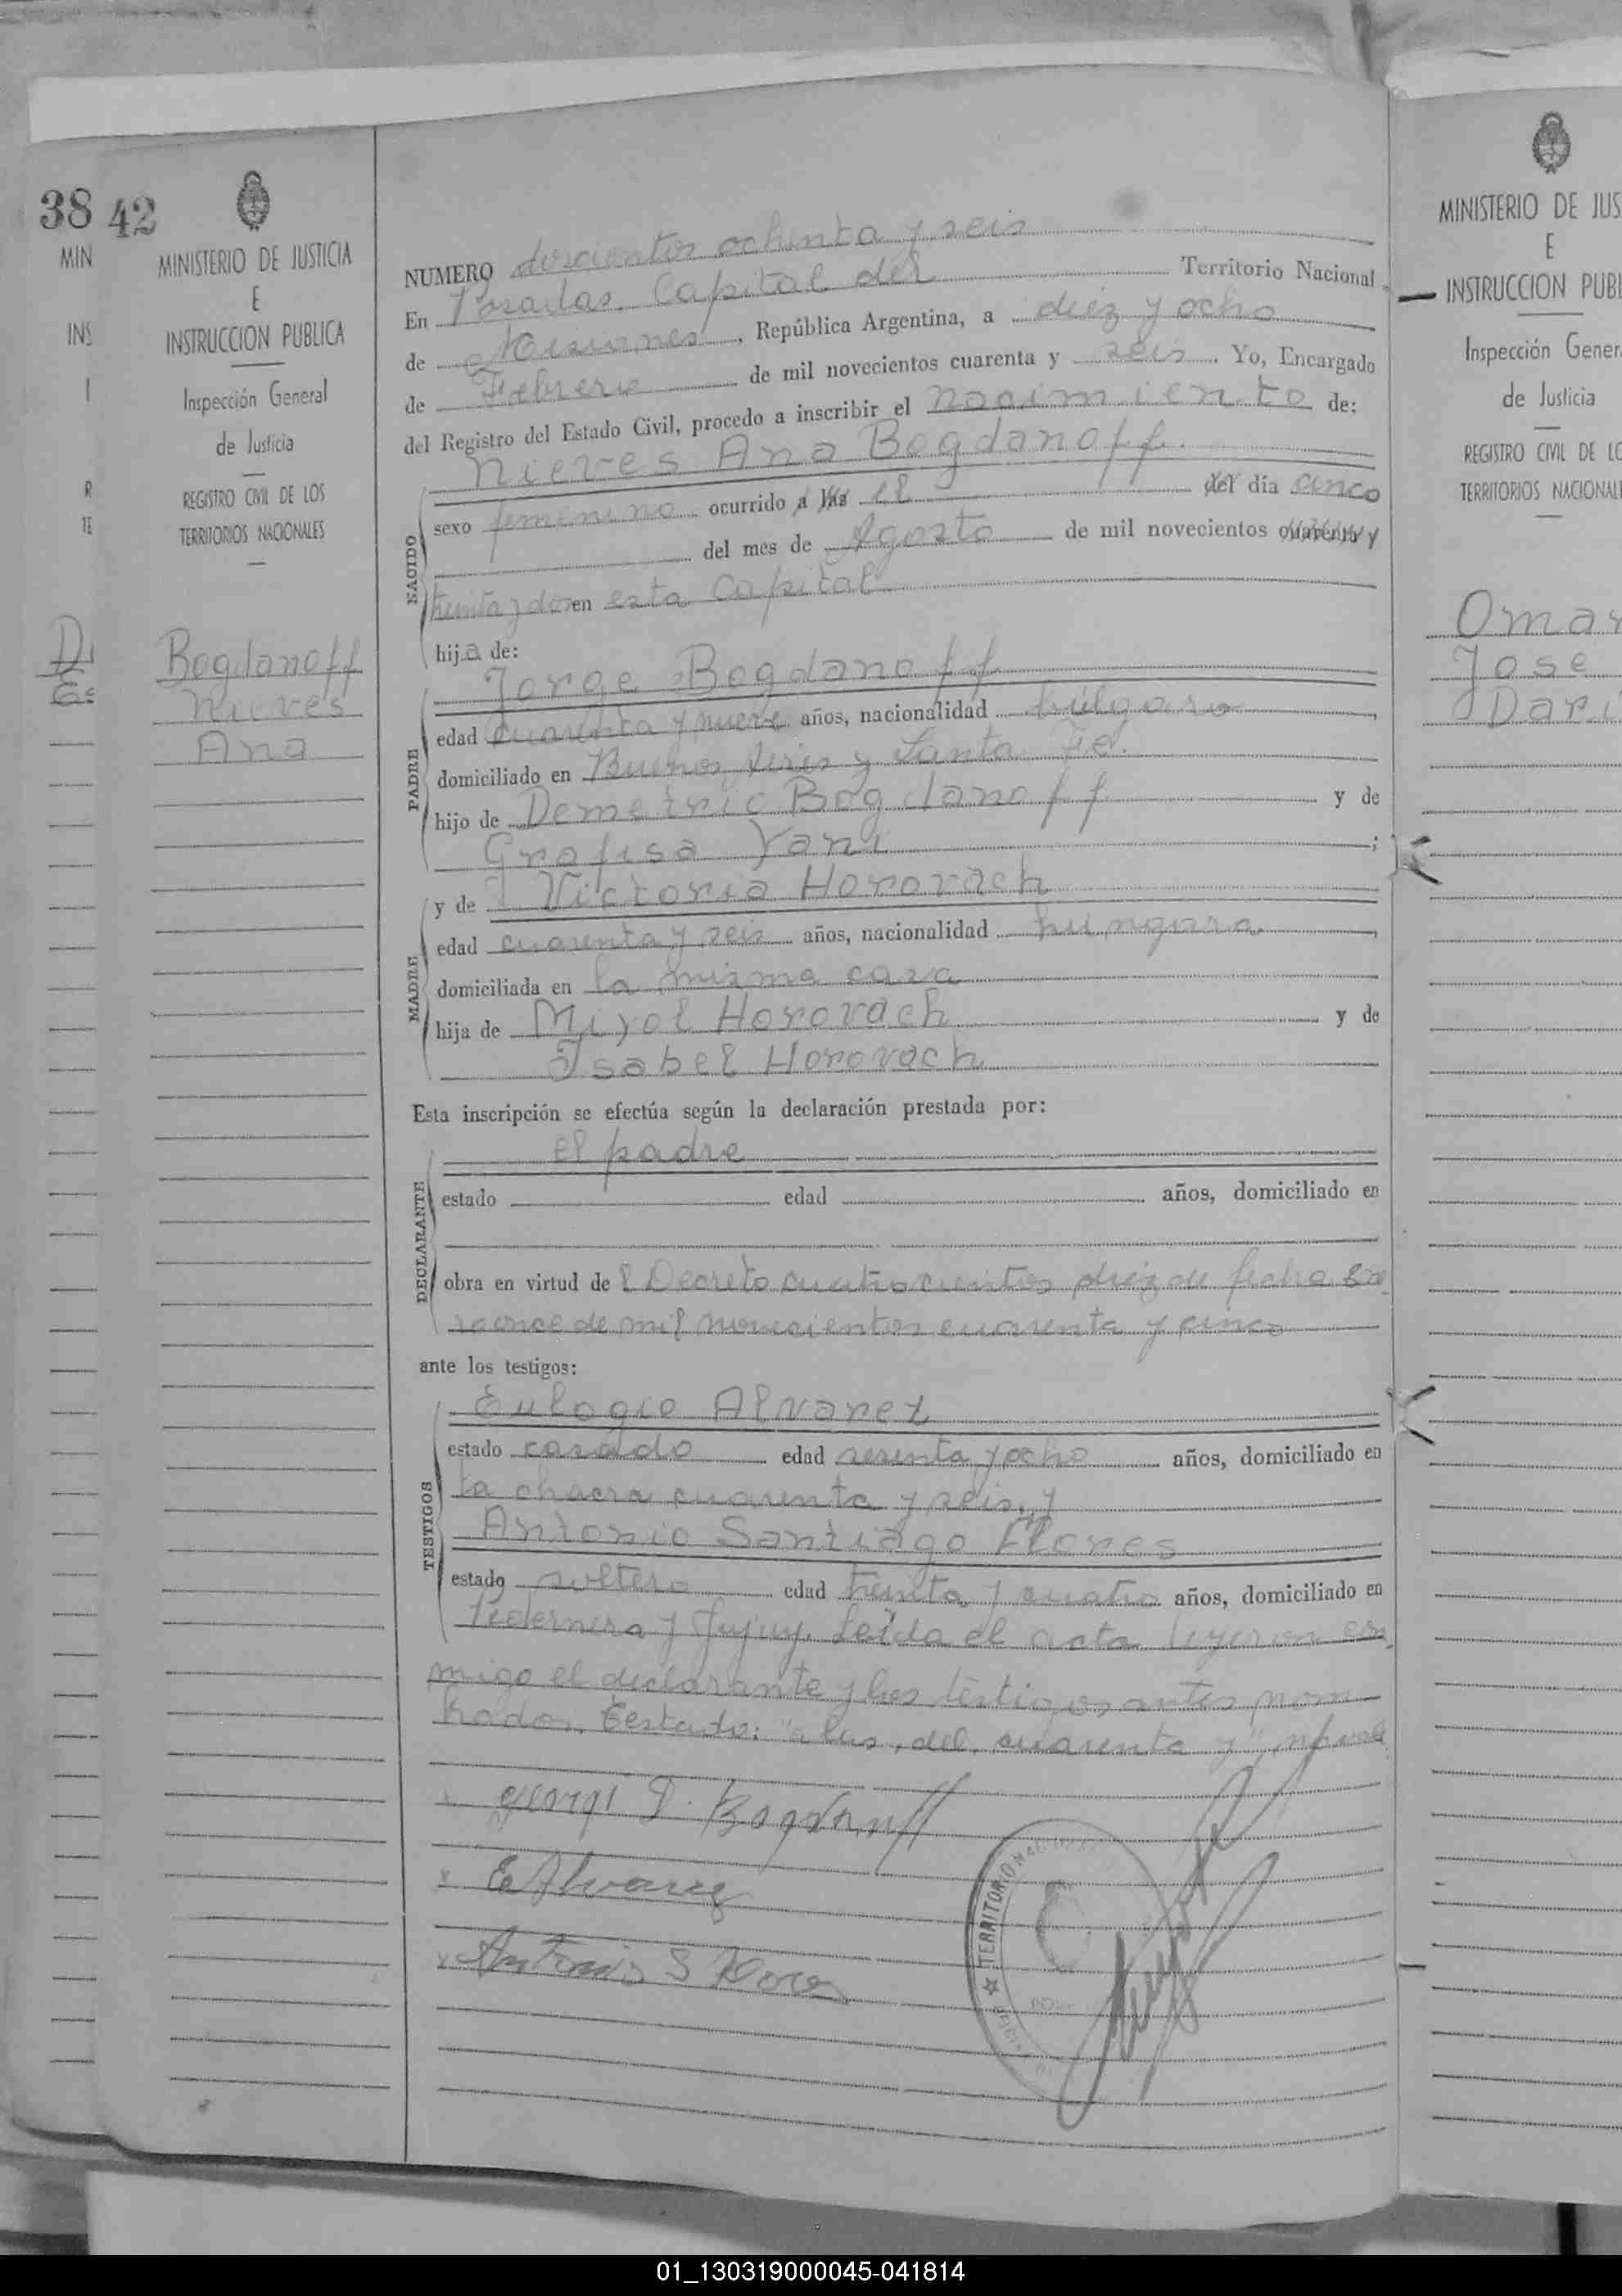 38 42
MINISTERIO DE JUSTICIA
E
INSTRUCCION PUBLICA
Inspección General
de Justicia
REGISTRO CIVIL DE LOS
TERRITORIOS NACIONALES
Bogdanoff
Nieves
Ana
NUMERO doscientos ochenta y seis
En Posadas, Capital del Territorio Nacional
de Misiones, República Argentina, a diez y ocho
de Febrero de mil novecientos cuarenta y seis. Yo, Encargado
del Registro del Estado Civil, procedo a inscribir el nacimiento de:
Nieves Ana Bogdanoff.
NACIDO
sexo femenino ocurrido a las el del día cinco
del mes de Agosto de mil novecientos cuarenta y
treinta y dos en esta Capital
hija de:
PADRE
Jorge Bogdanoff
edad cuarenta y nueve años, nacionalidad búlgaro,
domiciliado en Buenos Aires y Santa Fe.
hijo de Demetrio Bogdanoff y de
Grafisa Yani;
MADRE
y de Victoria Horovach
edad cuarenta y seis años, nacionalidad hungara,
domiciliada en la misma casa
hija de Miyol Horovach y de
Isabel Horovach
Esta inscripción se efectúa según la declaración prestada por:
DECLARANTE
el padre
estado edad años, domiciliado en
obra en virtud del Decreto cuatrocientos diez de fecha Ene
ro once de mil novecientos cuarenta y cinco
ante los testigos:
TESTIGOS
Eulogio Alvarez
estado casado edad sesenta y ocho años, domiciliado en
la chacra cuarenta y seis, y
Antonio Santiago Flores
estado soltero edad treinta y cuatro años, domiciliado en
y Jujuy. Leída el acta firmaron con
migo el declarante y los testigos antes nom
brados. Testado: "a las, del, cuarenta y", no vale
Georgi D. Bogdanoff
E Alvarez
Antonio S Flores
TERRITORIO NACIONAL
MINISTERIO DE JUS
E
INSTRUCCION PUBL
Inspección Gener
de Justicia
REGISTRO CIVIL DE LO
TERRITORIOS NACIONAL
Omar
Jose
Dari
01_130319000045-041814